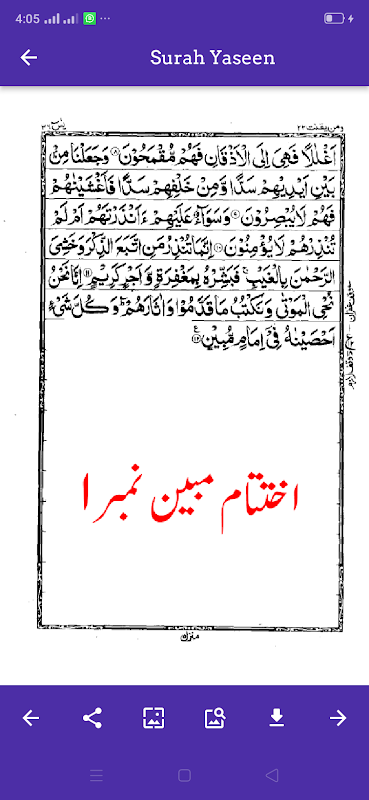 4:05
Surah Yaseen
يٰسٓ ٣٦
ومن يقنت ٢٢
اَغْلٰلًا فَهِيَ اِلَى الْاَذْقَانِ فَهُمْ مُّقْمَحُوْنَ ۝٨ وَجَعَلْنَا مِنْۢ
بَيْنِ اَيْدِيْهِمْ سَدًّا وَّمِنْ خَلْفِهِمْ سَدًّا فَاَغْشَيْنٰهُمْ
فَهُمْ لَا يُبْصِرُوْنَ ۝٩ وَسَوَآءٌ عَلَيْهِمْ ءَاَنْذَرْتَهُمْ اَمْ لَمْ
تُنْذِرْهُمْ لَا يُؤْمِنُوْنَ ۝١٠ اِنَّمَا تُنْذِرُ مَنِ اتَّبَعَ الذِّكْرَ وَخَشِيَ
الرَّحْمٰنَ بِالْغَيْبِ ۚ فَبَشِّرْهُ بِمَغْفِرَةٍ وَّاَجْرٍ كَرِيْمٍ ۝١١ اِنَّا نَحْنُ
نُحْيِ الْمَوْتٰى وَنَكْتُبُ مَا قَدَّمُوْا وَاٰثَارَهُمْ ؕ وَكُلَّ شَيْءٍ
اَحْصَيْنٰهُ فِيْٓ اِمَامٍ مُّبِيْنٍ ۝١٢
اختتام مبین نمبر ۱
منزل ۵